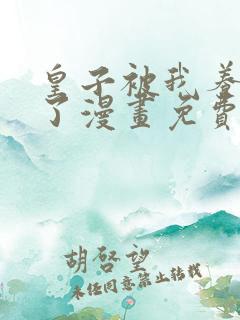 皇子被我養
了漫畫免費
胡啓望
未经同意禁止转载